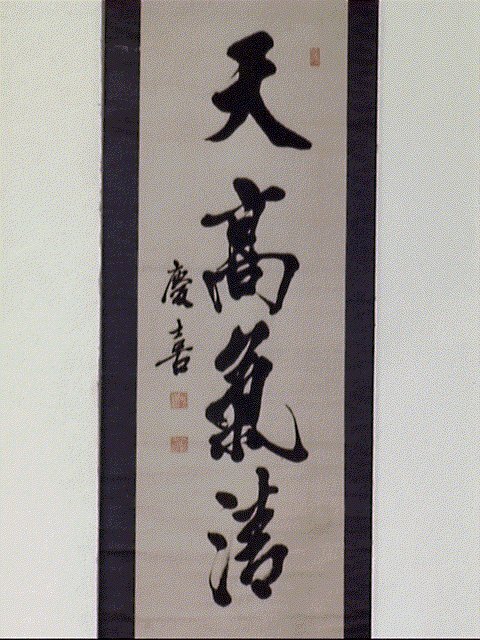 天高氣清
慶喜